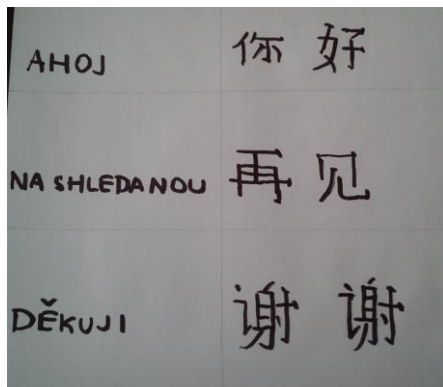 AHOJ 你好
NA SHLEDANOU 再见
DĚKUJI 谢谢